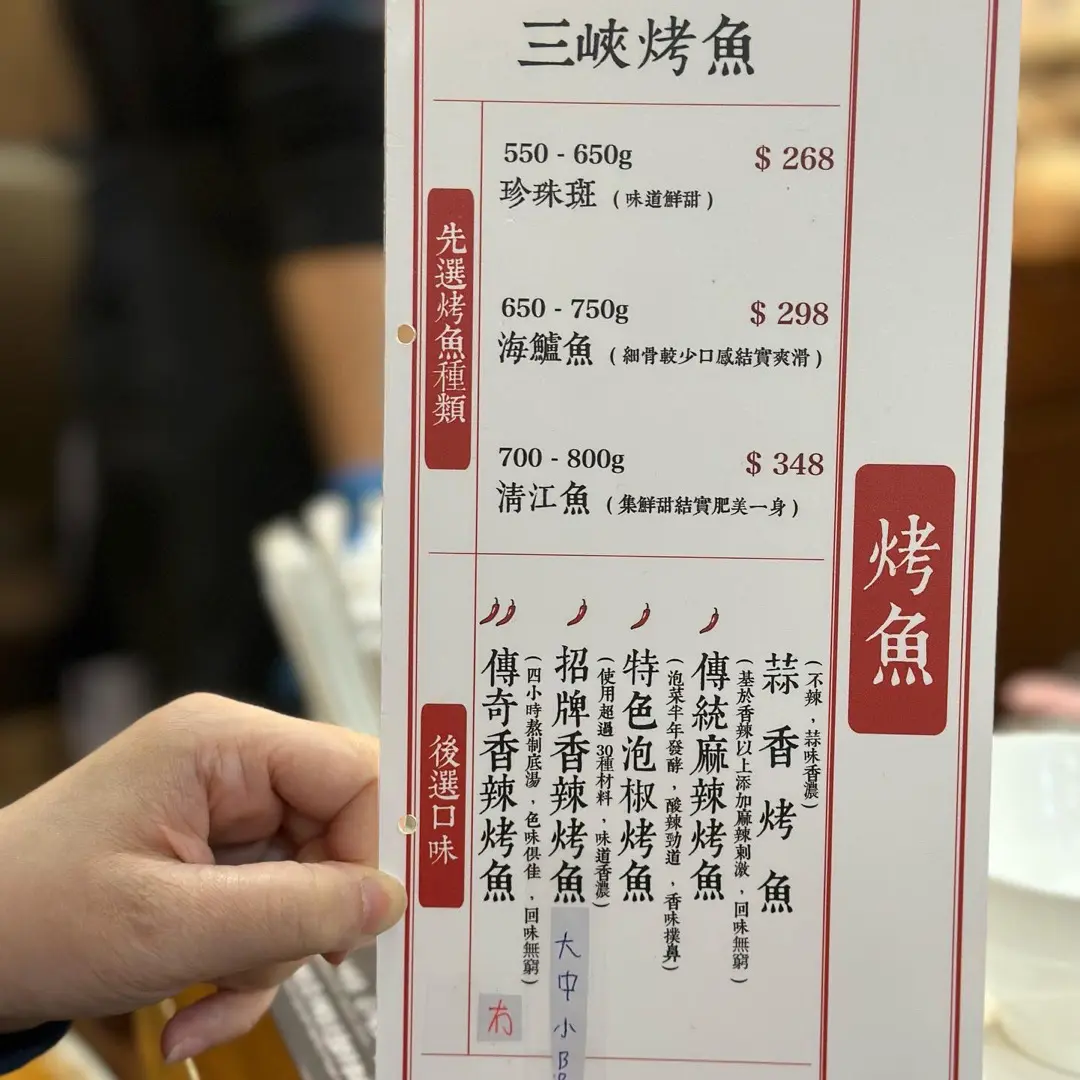 三峽烤魚
先選烤魚種類
550 - 650g $ 268
珍珠斑 (味道鮮甜)
650 - 750g $ 298
海鱸魚 (細骨較少口感結實爽滑)
700 - 800g $ 348
清江魚 (集鮮甜結實肥美一身)
烤魚
後選口味
蒜香烤魚
(不辣，蒜味香濃)
傳統麻辣烤魚
(基於香辣以上添加麻辣刺激，回味無窮)
特色泡椒烤魚
(泡菜半年發酵，酸辣勁道，香味撲鼻)
招牌香辣烤魚
(使用超過30種材料，味道香濃)
大中小
傳奇香辣烤魚
(四小時熬制底湯，色味俱佳，回味無窮)